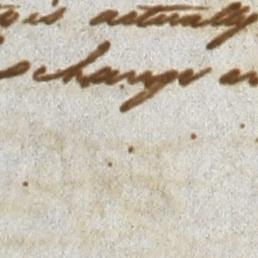 is actually
change